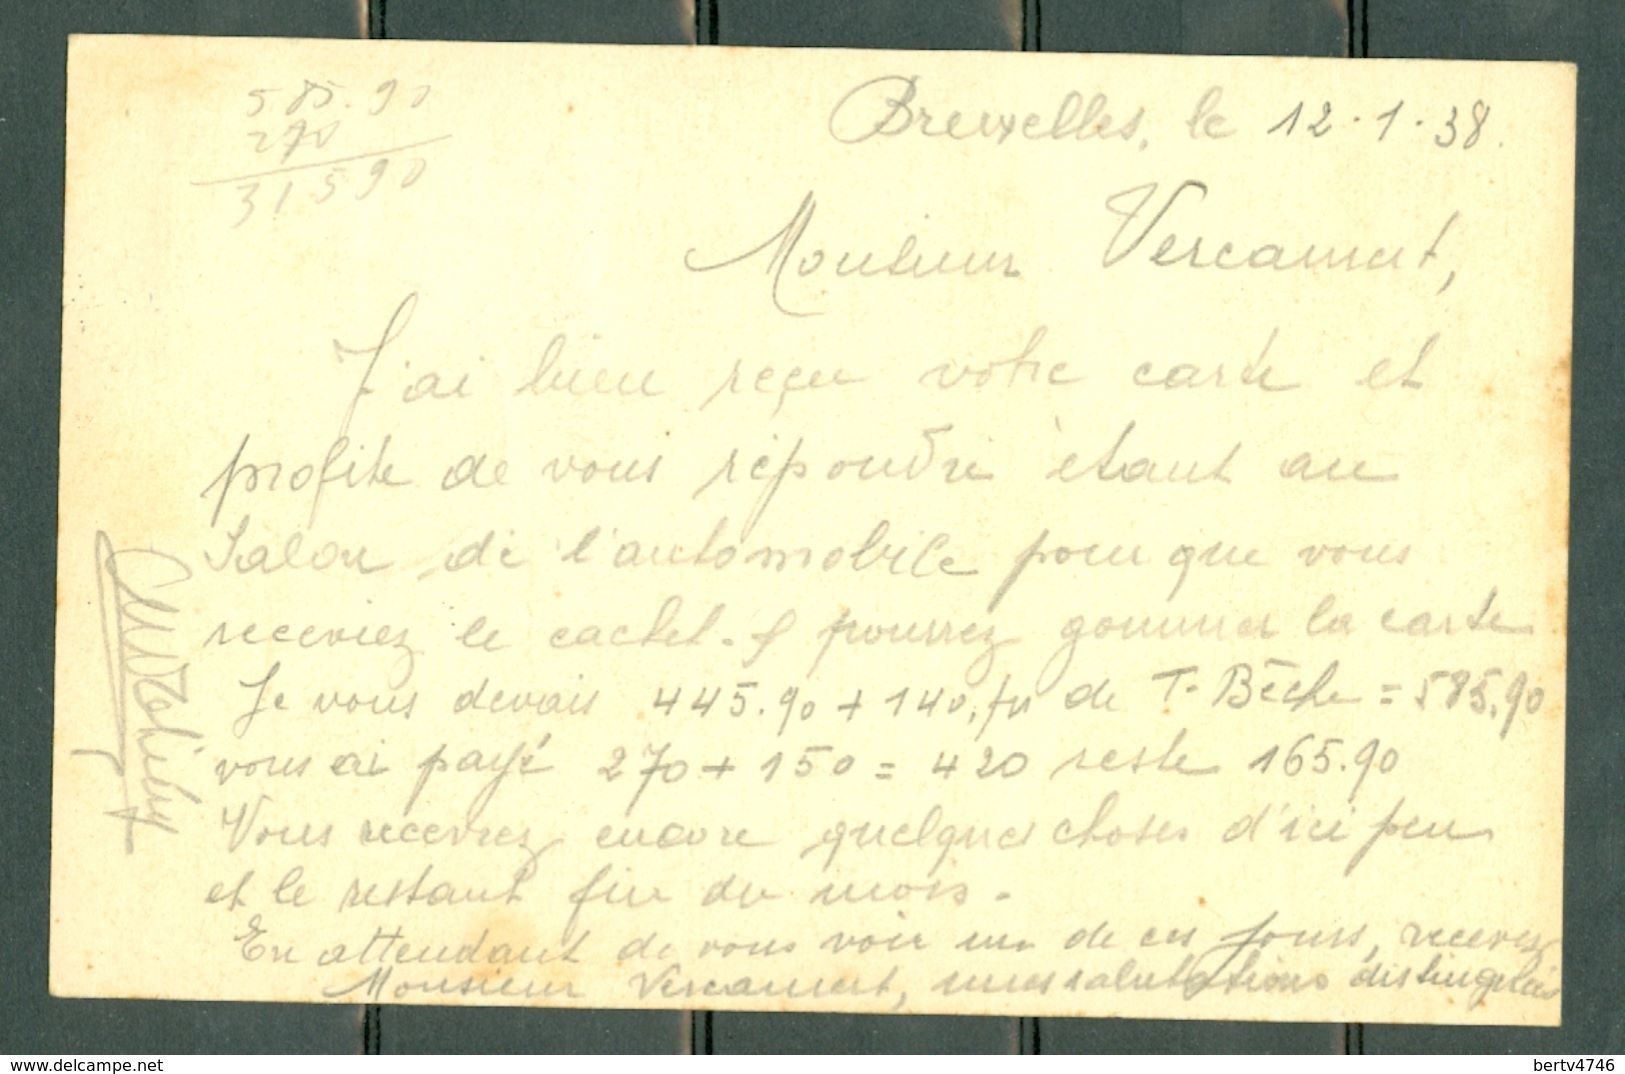 585.90
270
315 90
Bruxelles, le 12.1.38.
Monsieur Vercamert,
J'ai bien reçu votre carte et
profite de vous répondre étant au
Salon de l'automobile pour que vous
receviez le cachet. pourrez gommer la carte
Je vous devais 445.90 + 140, fr de T. Bêche = 585.90
vous ai payé 270 + 150 = 420 reste 165.90
Vous recevrez encore quelques choses d'ici peu
et le restant fin du mois.
En attendant de vous voir un de ces jours, recevez
Monsieur Vercamert, mes salutations distinguées
delcampe.net
bertv4746